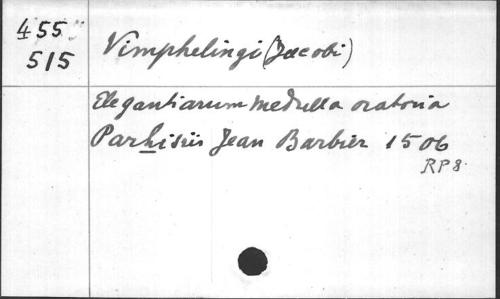 455
515
Vimphelingi (Jacobi)
Elegantiarum medulla oratoria
Parhisiis Jean Barbier 1506
RP 8.